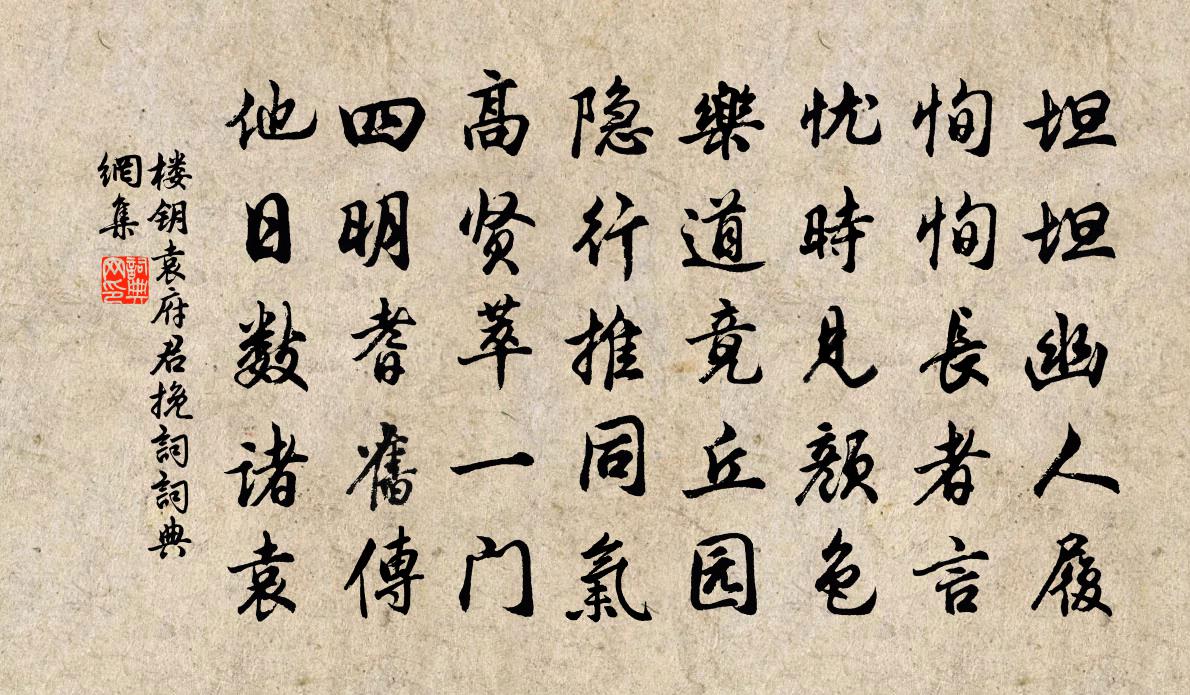 坦坦幽人履
恂恂長者言
忧時見顔色
樂道竟丘园
隐行推同氣
高贤萃一门
四明耆舊傳
他日数诸袁
楼钥袁府君挽詞詞典
網集
詞典
网印